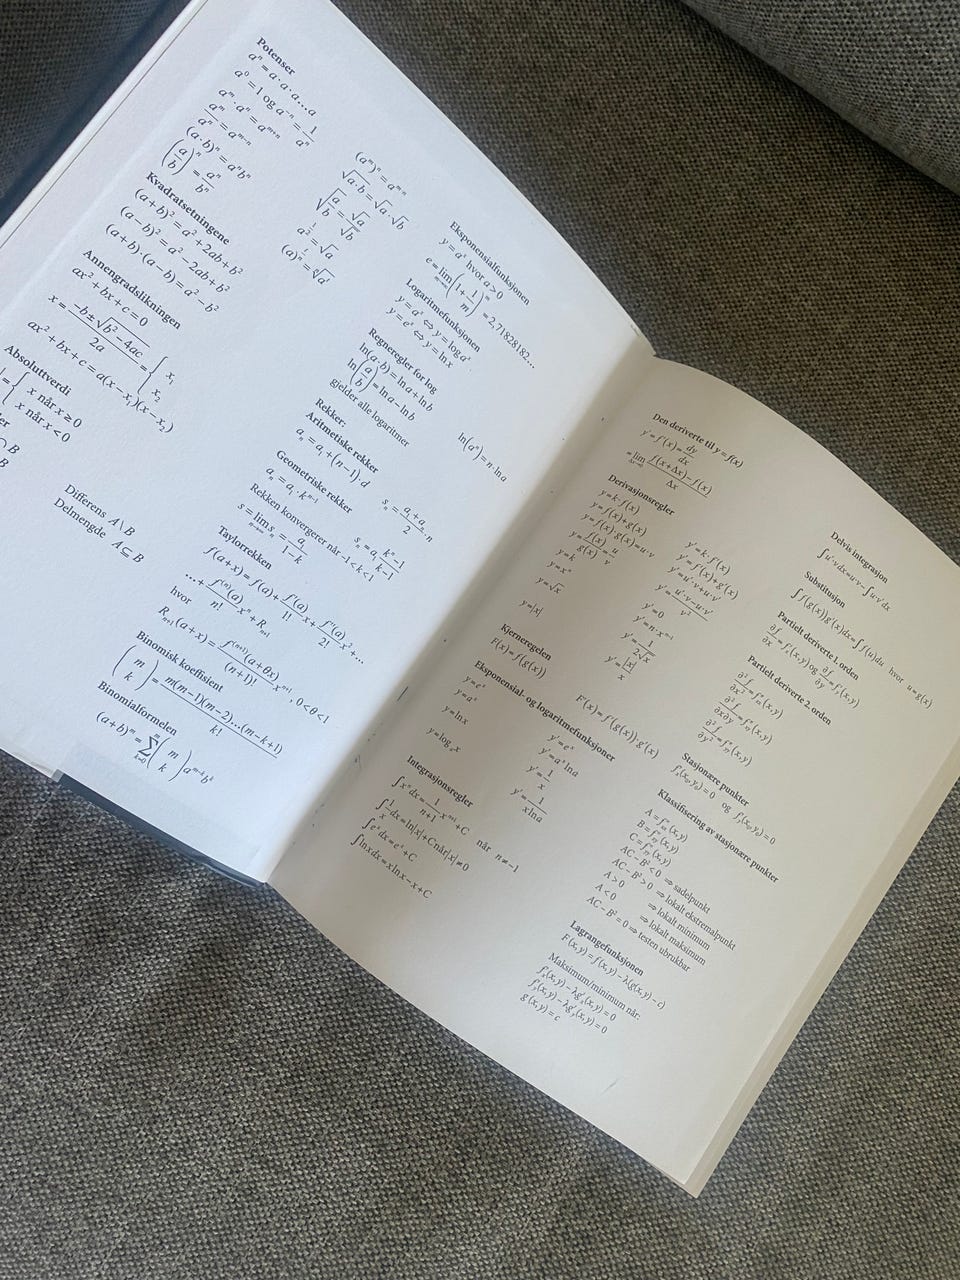 Potenser
aⁿ = a · a · a … a
a⁰ = 1 og a⁻ⁿ = 1/aⁿ
aᵐ · aⁿ = aᵐ⁺ⁿ
aᵐ/aⁿ = aᵐ⁻ⁿ
(a·b)ⁿ = aⁿbⁿ
(a/b)ⁿ = aⁿ/bⁿ
(aᵐ)ⁿ = aᵐ·ⁿ
√(a·b) = √a · √b
√(a/b) = √a/√b
Kvadratsetningene
(a+b)² = a² + 2ab + b²
(a−b)² = a² − 2ab + b²
(a+b)·(a−b) = a² − b²
Annengradslikningen
ax² + bx + c = 0
x = (−b ± √(b² − 4ac))/2a = { x₁ x₂
ax² + bx + c = a(x − x₁)(x − x₂)
Absoluttverdi
x når x ≥ 0
x når x < 0
Differens A\B
Delmengde A ⊆ B
Eksponensialfunksjonen
y = aˣ hvor a > 0
e = lim (1 + 1/m)ᵐ = 2,71828182…
Logaritmefunksjonen
y = eˣ ⇔ y = ln x
Regneregler for log
ln(a·b) = ln a + ln b
ln(a/b) = ln a − ln b
ln(aⁿ) = n·ln a
gjelder alle logaritmer
Rekker:
Aritmetiske rekker
aₙ = a₁ + (n−1)·d
sₙ = (a₁ + aₙ)/2 · n
Geometriske rekker
aₙ = a₁ · kⁿ⁻¹
sₙ = a₁ (kⁿ − 1)/(k − 1)
Rekken konvergerer når −1 < k < 1
s = lim sₙ = a₁/(1 − k)
Taylorrekken
f(a+x) = f(a) + f'(a)/1! x + f''(a)/2! x² + …
… + f⁽ⁿ⁾(a)/n! xⁿ + Rₙ₊₁
hvor
Rₙ₊₁(a+x) = f⁽ⁿ⁺¹⁾(a+θx)/(n+1)! xⁿ⁺¹, 0 < θ < 1
Binomisk koeffisient
(m k) = m(m−1)(m−2)…(m−k+1)/k!
Binomialformelen
(a+b)ᵐ = Σ (m k) aᵐ⁻ᵏbᵏ
Den deriverte til y = f(x)
y' = f'(x) = dy/dx
= lim (f(x+Δx) − f(x))/Δx
Derivasjonsregler
y = k·f(x) y' = k·f'(x)
y = f(x) + g(x) y' = f'(x) + g'(x)
y = f(x)·g(x) = u·v y' = u'·v + u·v'
y = f(x)/g(x) = u/v y' = (u'·v − u·v')/v²
y = k y' = 0
y = xⁿ y' = n·xⁿ⁻¹
y = √x y' = 1/(2√x)
y = |x| y' = |x|/x
Kjerneregelen
F(x) = f(g(x)) F'(x) = f'(g(x))g'(x)
Eksponensial- og logaritmefunksjoner
y = eˣ y' = eˣ
y = aˣ y' = aˣ ln a
y = ln x y' = 1/x
y = logₐ x y' = 1/(x ln a)
Integrasjonsregler
∫xⁿdx = 1/(n+1) xⁿ⁺¹ + C når n ≠ −1
∫1/x dx = ln|x| + C når |x| ≠ 0
∫eˣdx = eˣ + C
∫ln x dx = x ln x − x + C
Delvis integrasjon
∫u'·v dx = u·v − ∫u·v' dx
Substitusjon
∫f(g(x))g'(x)dx = ∫f(u)du hvor u = g(x)
Partielt deriverte 1. orden
∂f/∂x = f'ₓ(x,y) og ∂f/∂y = f'ᵧ(x,y)
Partielt deriverte 2. orden
Stasjonære punkter
f'ₓ(x₀,y₀) = 0 og f'ᵧ(x₀,y₀) = 0
Klassifisering av stasjonære punkter
AC − B² < 0 ⇒ sadelpunkt
AC − B² > 0 ⇒ lokalt ekstremalpunkt
A > 0 ⇒ lokalt minimum
A < 0 ⇒ lokalt maksimum
AC − B² = 0 ⇒ testen ubrukbar
Lagrangefunksjonen
F(x,y) = f(x,y) − λ(g(x,y) − c)
Maksimum/minimum når:
f'ₓ(x,y) − λg'ₓ(x,y) = 0
f'ᵧ(x,y) − λg'ᵧ(x,y) = 0
g(x,y) = c